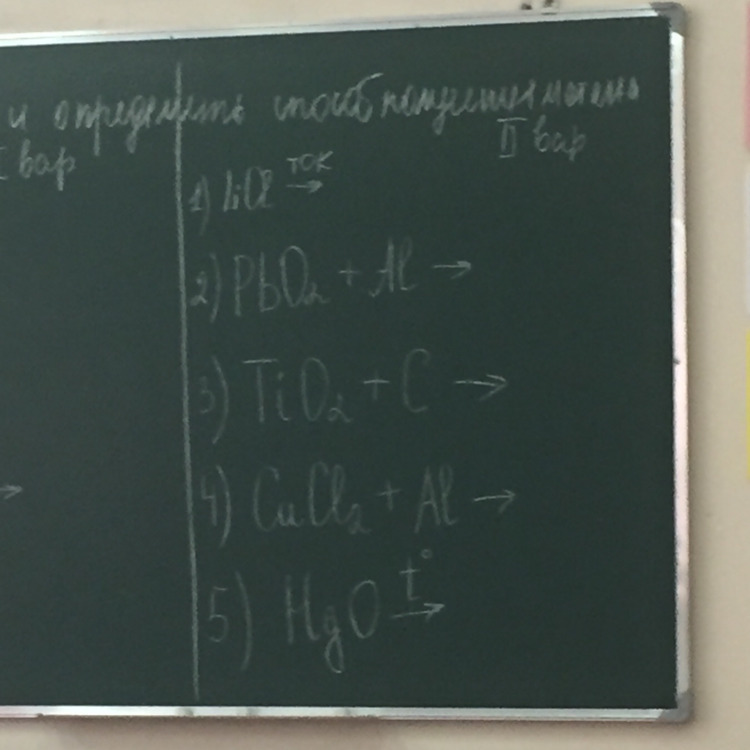 и определить способ получения металла
I вар
II вар
1) LiCl ток →
2) PbO₂ + Al →
3) TiO₂ + C →
4) CuCl₂ + Al →
5) HgO t° →
→